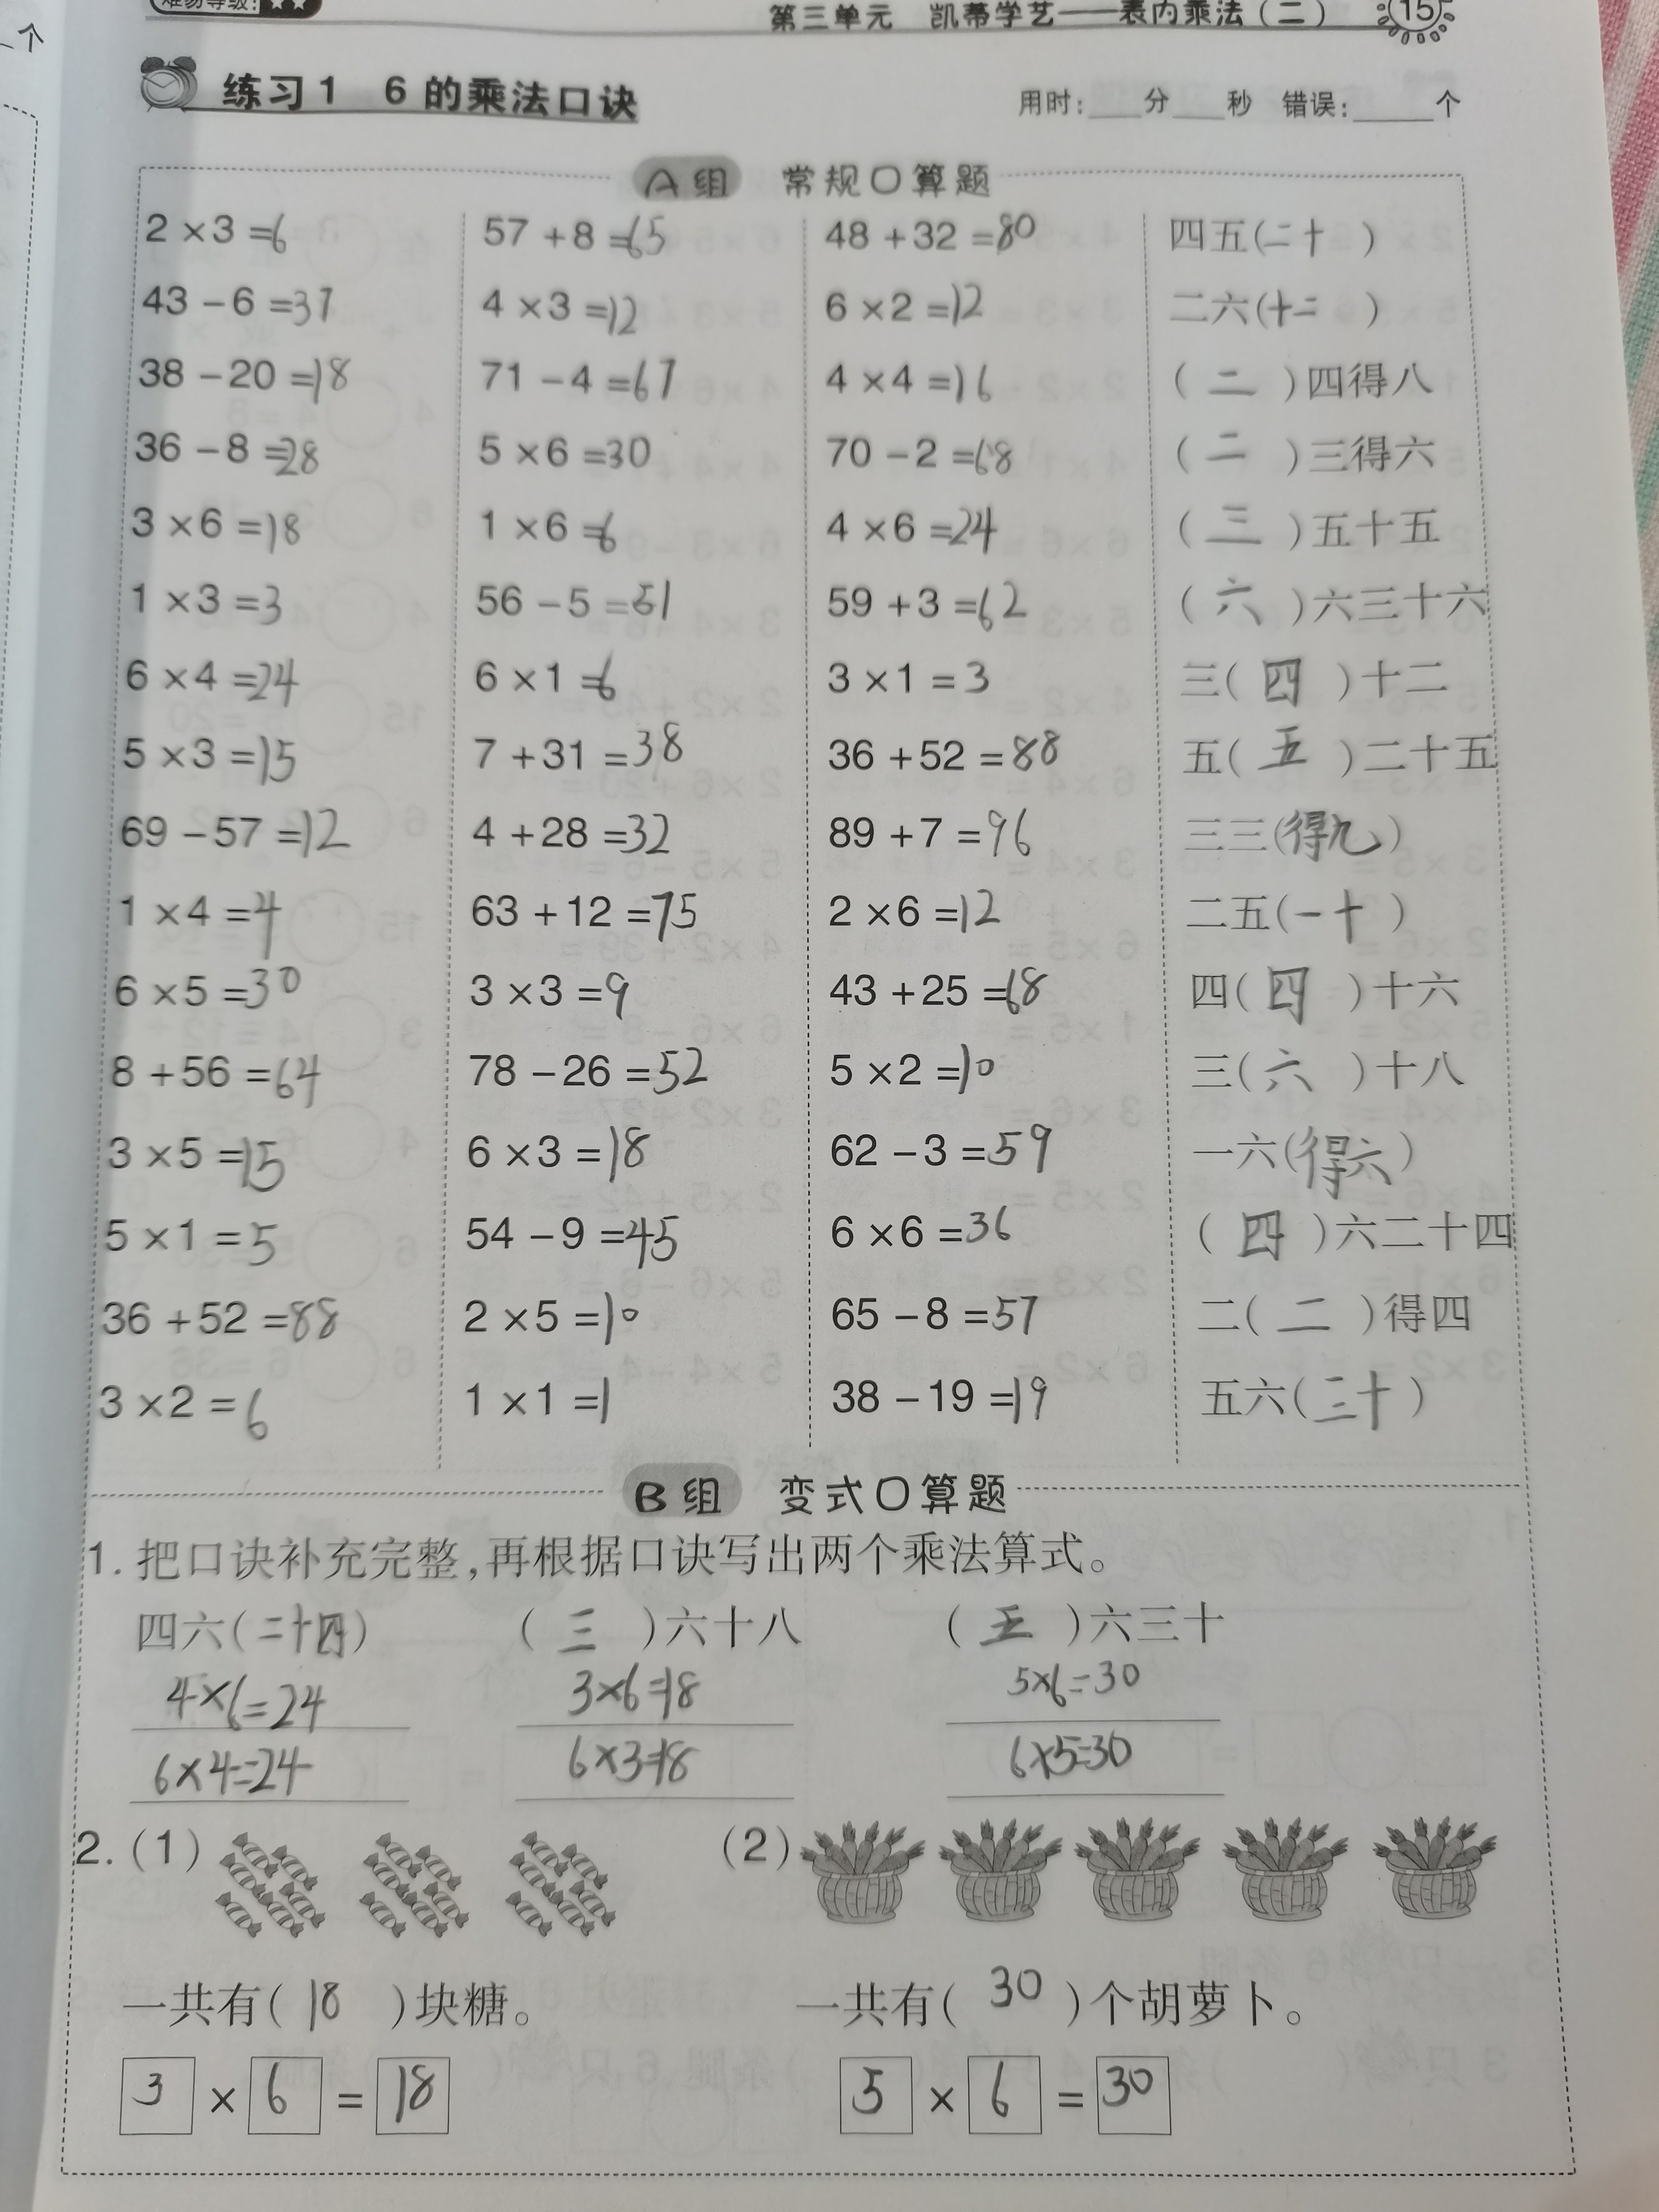 第三单元 凯蒂学艺——表内乘法(二) 15
个
练习1 6的乘法口诀 用时:___分___秒 错误:_____个
A组 常规口算题
2×3=6 57+8=65 48+32=80 四五(二十)
43-6=37 4×3=12 6×2=12 二六(十二)
38-20=18 71-4=67 4×4=16 (二)四得八
36-8=28 5×6=30 70-2=68 (二)三得六
3×6=18 1×6=6 4×6=24 (三)五十五
1×3=3 56-5=51 59+3=62 (六)六三十六
6×4=24 6×1=6 3×1=3 三(四)十二
5×3=15 7+31=38 36+52=88 五(五)二十五
69-57=12 4+28=32 89+7=96 三三(得九)
1×4=4 63+12=75 2×6=12 二五(一十)
6×5=30 3×3=9 43+25=68 四(四)十六
8+56=64 78-26=52 5×2=10 三(六)十八
3×5=15 6×3=18 62-3=59 一六(得六)
5×1=5 54-9=45 6×6=36 (四)六二十四
36+52=88 2×5=10 65-8=57 二(二)得四
3×2=6 1×1=1 38-19=19 五六(三十)
B组 变式口算题
1.把口诀补充完整,再根据口诀写出两个乘法算式。
四六(二十四) (三)六十八 (五)六三十
4×6=24 3×6=18 5×6=30
6×4=24 6×3=18 6×5=30
2.(1) (2)
一共有(18)块糖。 一共有(30)个胡萝卜。
3×6=18 5×6=30